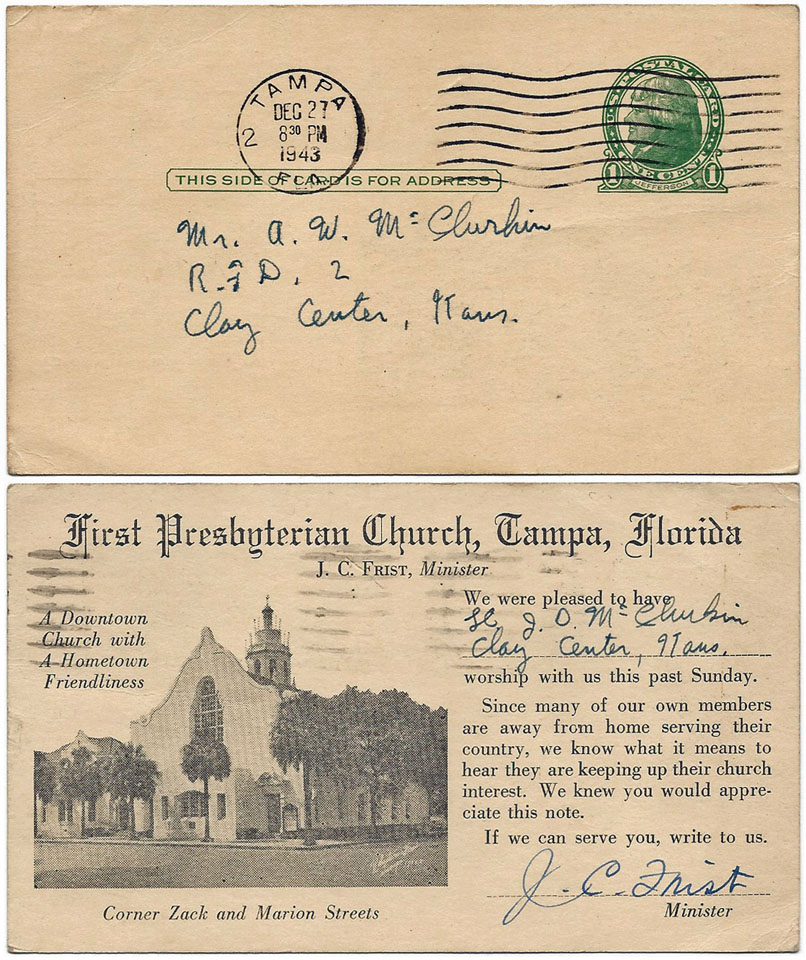 TAMPA
DEC 27
8 30 PM
1943
FLA
2
U.S. POSTAL CARD
ONE CENT
1 JEFFERSON 1
THIS SIDE OF CARD IS FOR ADDRESS
Mr. A. W. Mc Clurkin
R.F.D. 2
Clay Center, Kans.
First Presbyterian Church, Tampa, Florida
J. C. Frist, Minister
A Downtown
Church with
A Hometown
Friendliness
Corner Zack and Marion Streets
We were pleased to have
J. D. Mc Clurkin
Clay Center, Kans.
worship with us this past Sunday.
Since many of our own members
are away from home serving their
country, we know what it means to
hear they are keeping up their church
interest. We knew you would appre-
ciate this note.
If we can serve you, write to us.
J. C. Frist
Minister